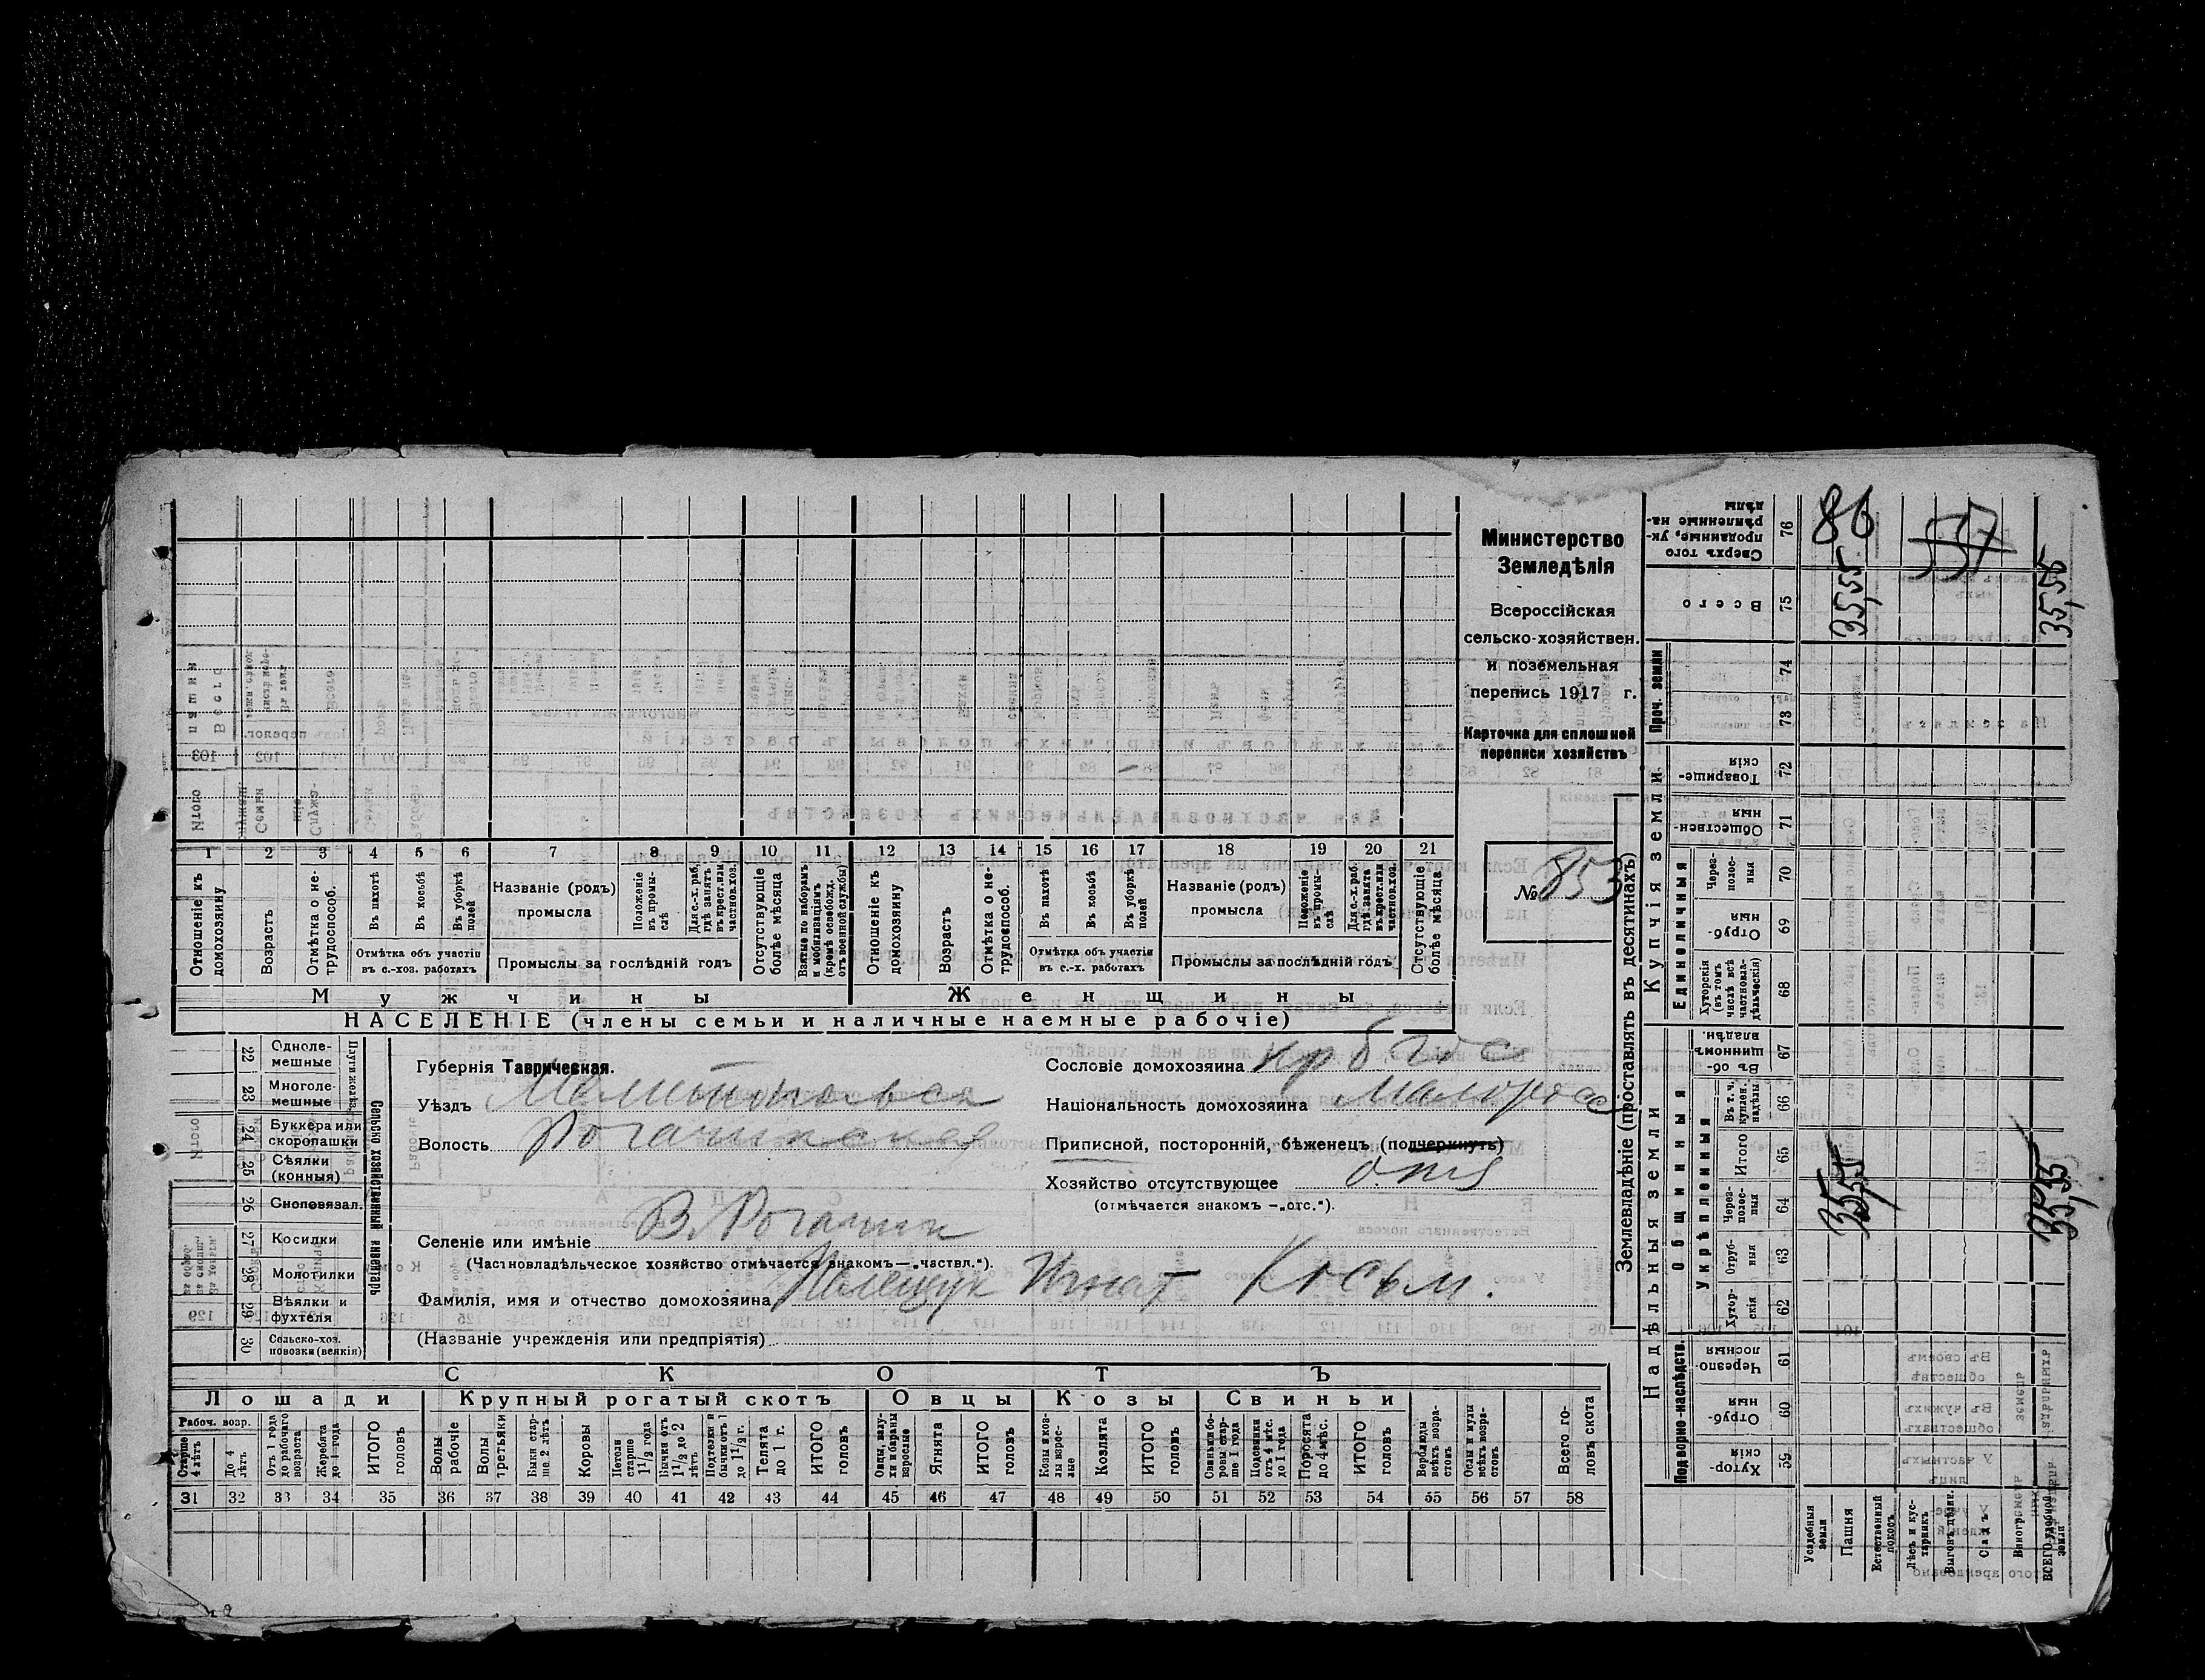 86
557
Министерство
Земледѣлія
Всероссійская
сельско-хозяйствен.
и поземельная
перепись 1917 г.
Карточка для сплошной
переписи хозяйствъ
№ 853
1 2 3 4 5 6 7 8 9 10 11 12 13 14 15 16 17 18 19 20 21
Отношеніе къ домохозяину
Возрастъ
Отмѣтка о не-трудоспособ.
Въ пахотѣ
Въ косьбѣ
Въ уборкѣ полей
Отмѣтка объ участіи
въ с.-хоз. работахъ
Названіе (родъ)
промысла
Положеніе въ промы-слѣ
Для с.-х. раб. гдѣ занятъ въ крест. или частнов. хоз.
Промыслы за послѣдній годъ
Отсутствующіе болѣе мѣсяца
Взятые по наборамъ и мобилизаціямъ (кромѣ освобожд. отъ военной службы)
Отношеніе къ домохозяину
Возрастъ
Отмѣтка о не-трудоспособ.
Въ пахотѣ
Въ косьбѣ
Въ уборкѣ полей
Отмѣтка объ участіи
въ с.-х. работахъ
Названіе (родъ)
промысла
Положеніе въ промы-слѣ
Для с.-х. раб. гдѣ занята въ крест. или частнов. хоз.
Промыслы за послѣдній годъ
Отсутствующіе болѣе мѣсяца
Мужчины
Женщины
НАСЕЛЕНІЕ (члены семьи и наличные наемные рабочіе)
Сельско хозяйственный инвентарь
22 Одноле-мешные
23 Многоле-мешные
24 Буккера или скоропашки
25 Сѣялки (конныя)
26 Сноповязал.
27 Косилки
28 Молотилки
29 Вѣялки и фухтеля
30 Сельско-хоз. повозки (всякія)
Губернія Таврическая.
Уѣздъ Мелитопольск
Волость Рогачикская
Селеніе или имѣніе В. Рогачик
(Частновладѣльческое хозяйство отмѣчается знакомъ—„частвл.“).
Фамилія, имя и отчество домохозяина Полещук Игнат Косьм.
(Названіе учрежденія или предпріятія)
Сословіе домохозяина
Національность домохозяина Малоросс
Приписной, посторонній, бѣженецъ (подчеркнуть)
Хозяйство отсутствующее отс
(отмѣчается знакомъ —„отс.“).
СКОТЪ
Лошади
Крупный рогатый скотъ
Овцы
Козы
Свиньи
Рабоч. возр.
Старше 4 лѣтъ
До 4 лѣтъ
Отъ 1 года до рабочаго возраста
Жеребята до 1 года
ИТОГО головъ
Волы рабочіе
Волы третьяки
Быки стар-ше 2 лѣтъ
Коровы
Нетели старше 1 1/2 года
Бычки отъ 1 1/2 до 2 лѣтъ
Подтелки и бычки отъ 1 до 1 1/2 г.
Телята до 1 г.
ИТОГО головъ
Овцы, валу-хи и бараны взрослые
Ягнята
ИТОГО головъ
Козы и коз-лы взрос-лые
Козлята
ИТОГО головъ
Свиньи и бо-ровы стар-ше 1 года
Подсвинки отъ 4 мѣс. до 1 года
Поросята до 4 мѣс.
ИТОГО головъ
Верблюды всѣхъ возра-стовъ
Ослы и мулы всѣхъ возра-стовъ
Всего го-ловъ скота
31 32 33 34 35 36 37 38 39 40 41 42 43 44 45 46 47 48 49 50 51 52 53 54 55 56 57 58
Землевладѣніе (проставлять въ десятинахъ)
Надѣльныя земли
Купчія земли
Проч. земли
Подворно-наслѣдств.
Общинныя
Укрѣпленныя
Единоличныя
59 Хутор-скія
60 Отруб-ныя
61 Черезпо-лосныя
62 Хутор-скія
63 Отруб-ныя
64 Через-полос-ныя
65 Итого
66 Въ т. ч. куплен. надѣлы
67 Въ об-щинномъ владѣн.
68 Хуторскія (въ томъ числѣ всѣ частновла-дѣльческія)
69 Отруб-ныя
70 Через-полос-ныя
71 Обществен-ныя
72 Товарище-скія
73
74
75 Всего
76 Сверхъ того проданные, ук-рѣпленные на-дѣлы
Усадебныя земли
Пашня 35,5 35,55
Естественный покосъ
Лѣсъ и кус-тарникъ
Выгонъ
Садъ
Виноград
ВСЕГО удобной земли 35,55 35,55